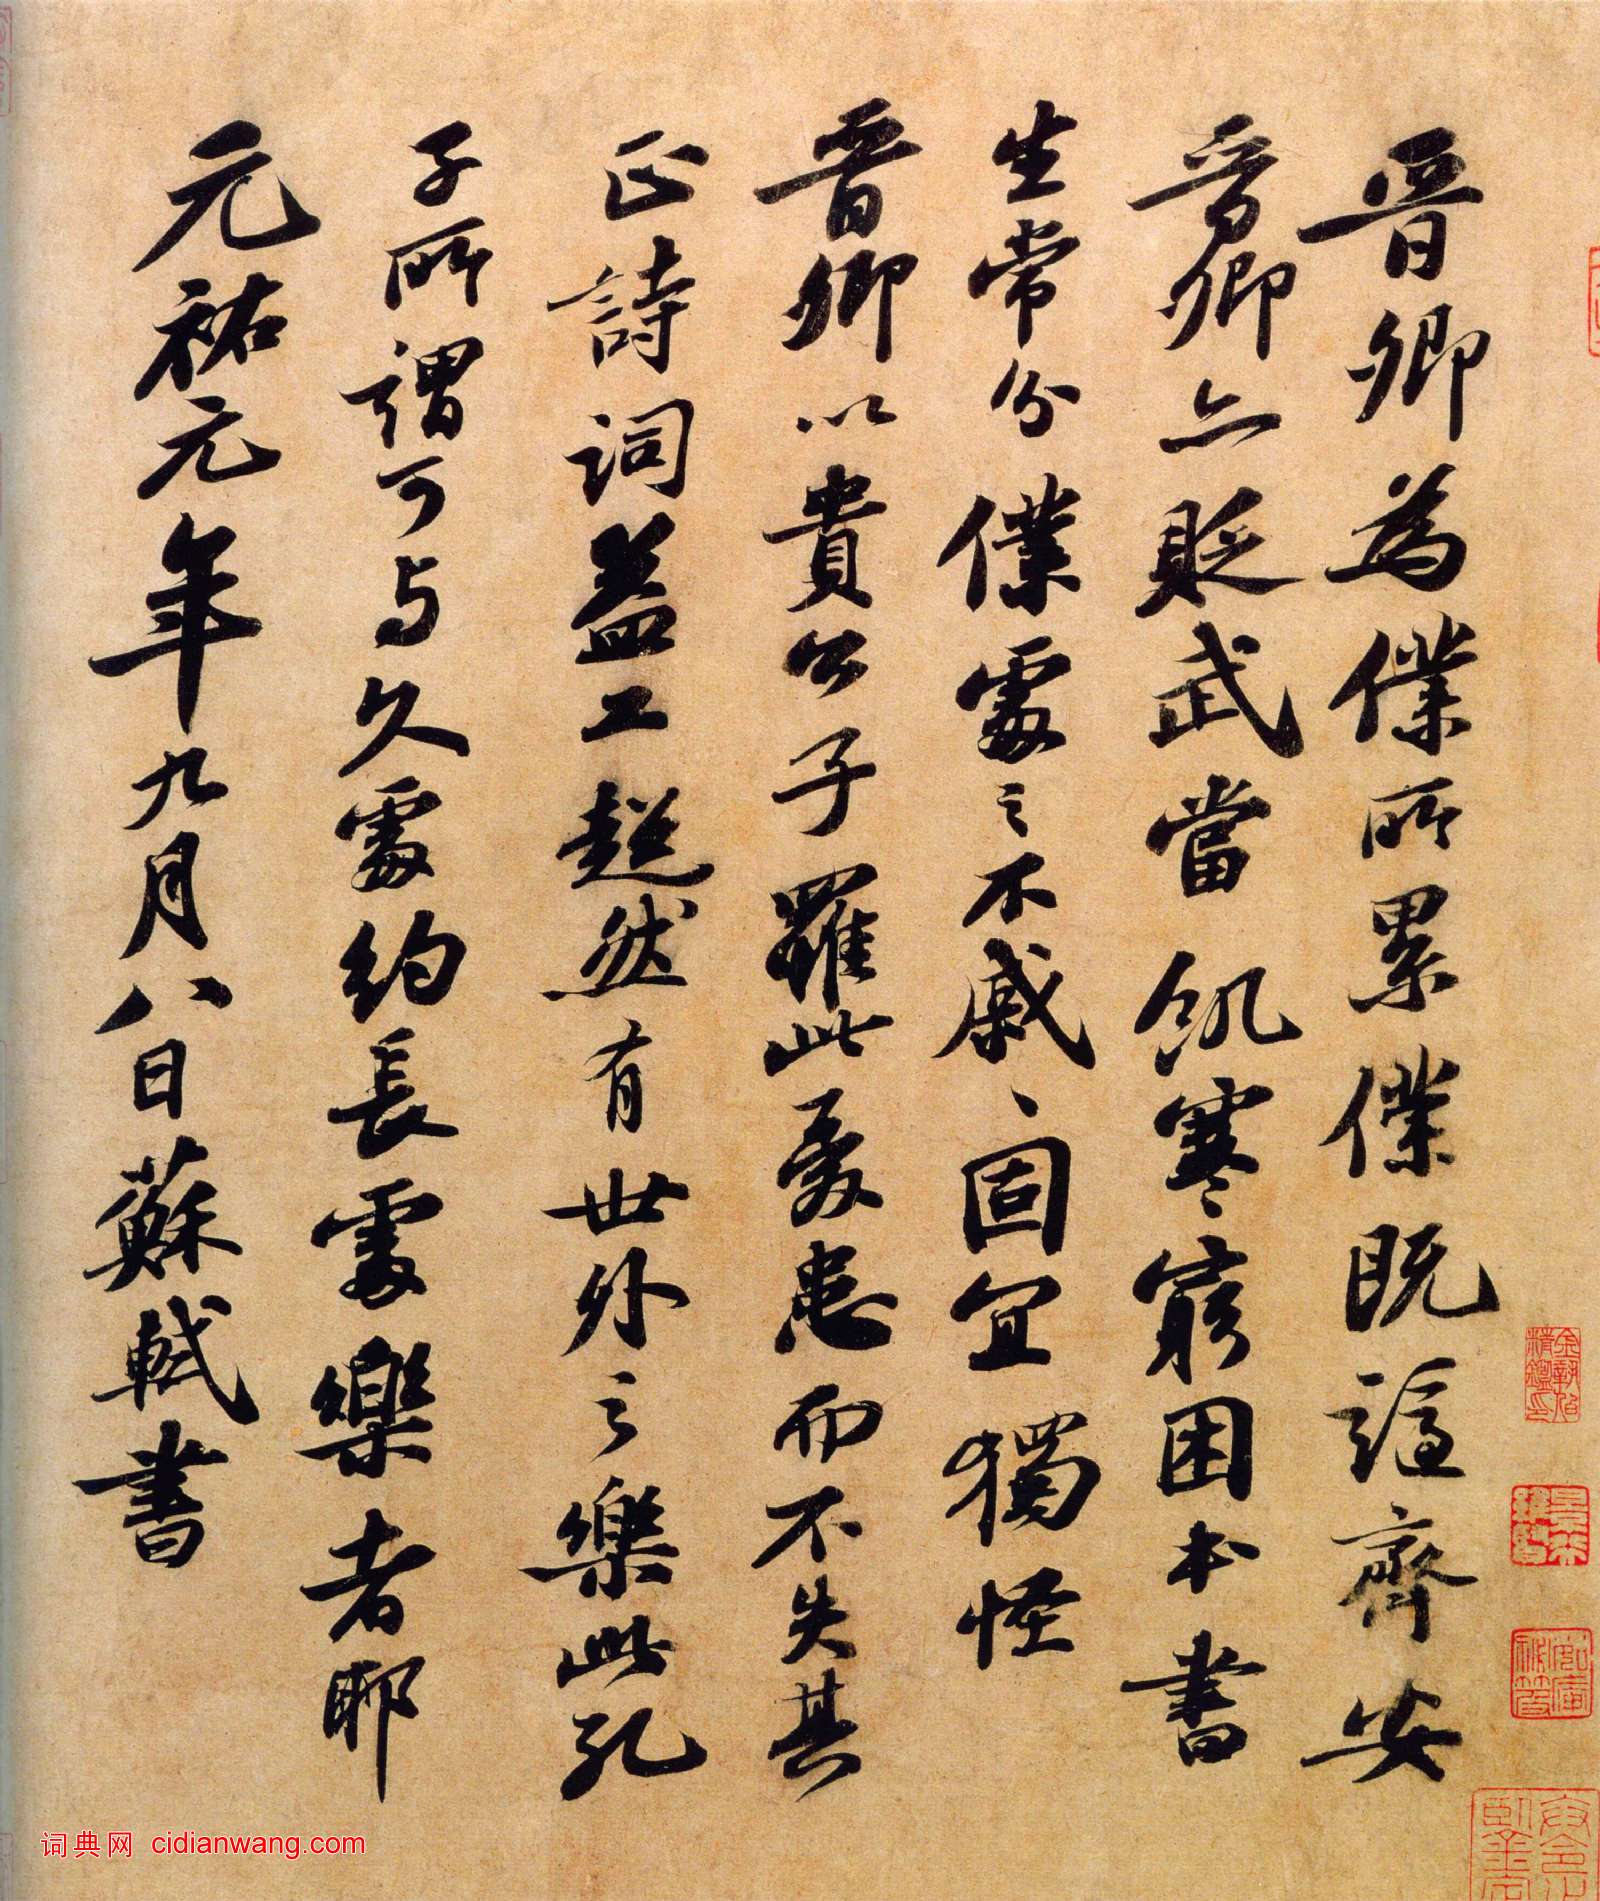 晉卿為僕所累僕既謫齊安
晉卿亦貶武當飢寒窮困本書
生常分僕處之不戚戚固宜獨怪
晉卿以貴公子罹此憂患而不失其
正詩詞益工超然有世外之樂此孔
子所謂可与久處約長處樂者耶
元祐元年九月八日蘇軾書
词典网 cidianwang.com